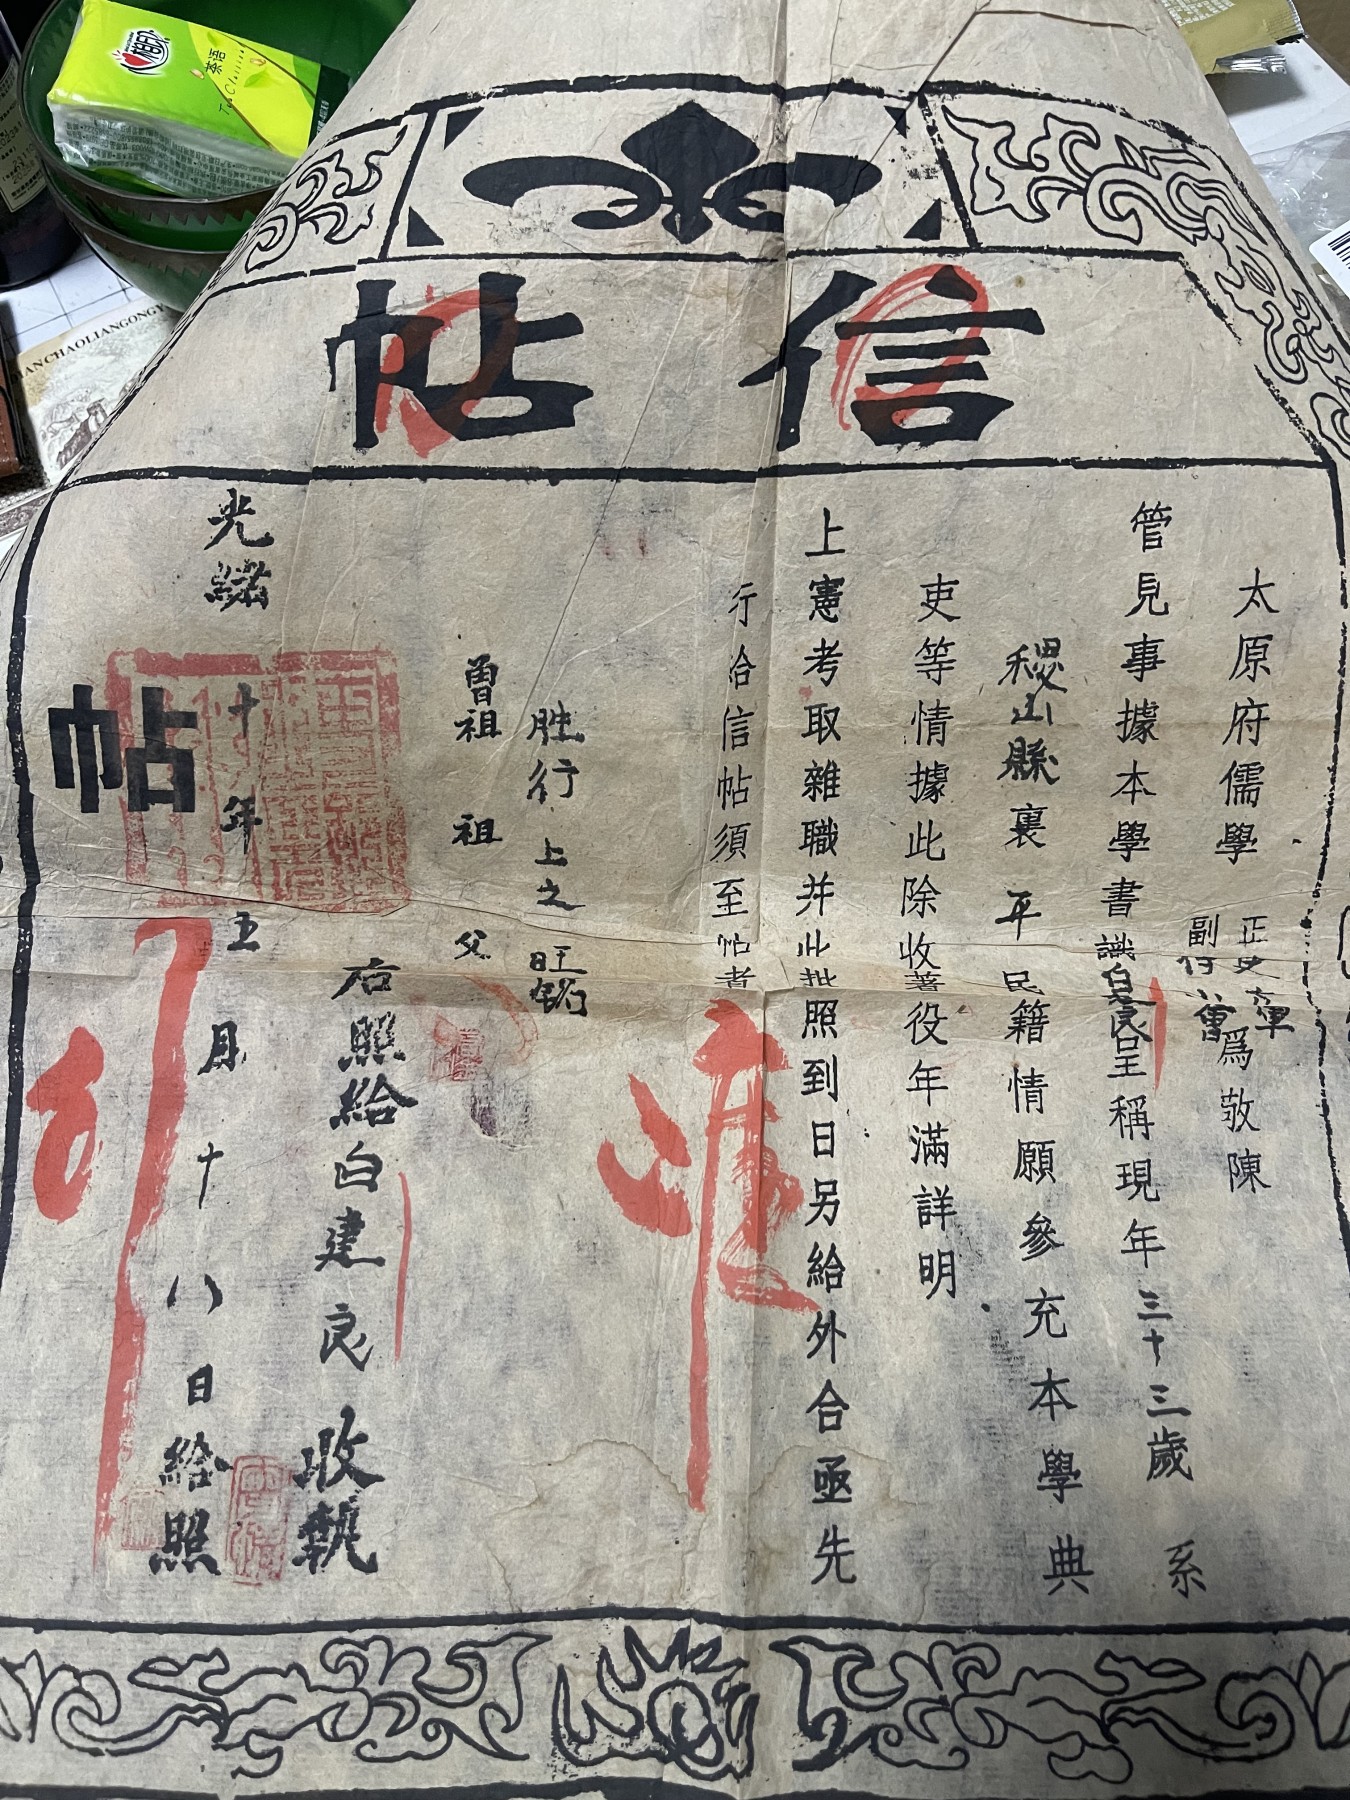 信帖
太原府儒學
正
副
爲敬陳
管見事據本學書識白建良呈稱現年三十三歲系
稷山縣裏平民籍情願參充本學典
吏等情據此除收著役年滿詳明
上憲考取雜職并此批照到日另給外合亟先
行洽信帖須至帖者
胜行上之旺
曾祖 祖 父
右照給白建良收執
光緒十年五月十八日給照
帖
心相印
茶语
Tea Classic
CHAOLIANGONGY